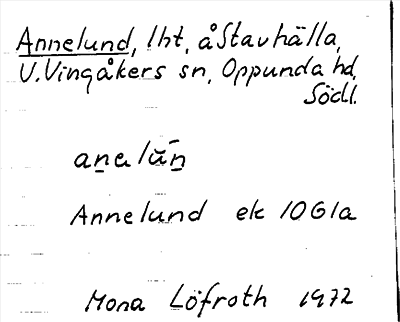 Annelund, lht, å Stavhälla,
V. Vingåkers sn, Oppunda hd,
Södl.
anelun
Annelund ek 10G1a
Mona Löfroth 1972